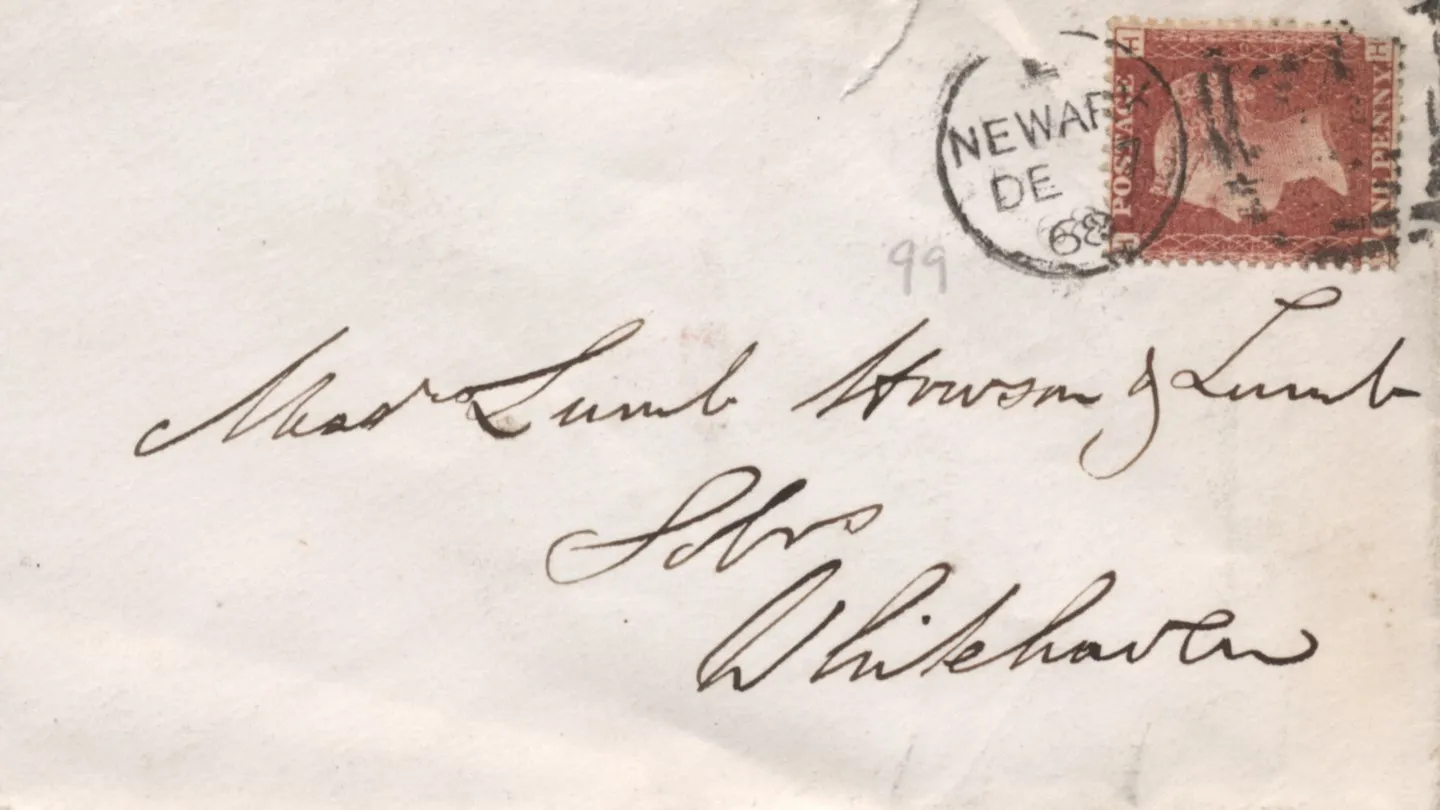 NEWARK
DE 7
68
POSTAGE
ONE PENNY
H
H
99
Messrs Lumb Howson & Lumb
Solrs
Whitehaven